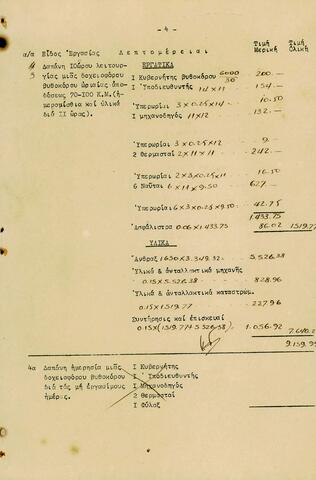 - 4 -
α/α Είδος Ἐργασίας Λεπτομέρειαι Τιμή Μερική Τιμή Ὁλική
4 Δαπάνη ΙΟώρου λειτουρ- ΕΡΓΑΤΙΚΑ
γίας μιᾶς δοχειοφόρου
βυθοκόρου ὡριαίας ἀπο- Ι Κυβερνήτης βυθοκόρου 6000/30 200.—
δόσεως 70-100 Κ.Μ.(ἡ- Ι Ὑποδιευθυντής 14 x 11 154.—
μερομίσθια καί ὑλικά
διά ΙΙ ὥρας). Ὑπερωρίαι 3 x 0.25 x 14 10.50
Ι μηχανοδηγός 11 x 12 132.—
Ὑπερωρίαι 3 x 0.25 x 12 9.
2 θερμασταί 2 x 11 x 11 242.—
Ὑπερωρίαι 2 x 3 x 0.25 x 11 16.50
6 Ναῦται 6 x 11 x 9.50 627.—
Ὑπερωρίαι 6 x 3 x 0.25 x 9.50 42.75
1.433.75
Ἀσφάλιστρα 0.06 x 1.433.75 86.02 1519.77
ΥΛΙΚΑ
Ἄνθραξ 1650 x 3.349.32 5.526.38
Ὑλικά & ἀνταλλακτικά μηχανῆς
0.15 x 5.526.38 828.96
Ὑλικά & ἀνταλλακτικά καταστρώμ.
0.15 x 1519.77 227.96
Συντήρησις καί ἐπισκευαί
0.15 x (1519.77 + 5.526.38) 1.056.92
9.159.99
4α Δαπάνη ἡμερησία μιᾶς Ι Κυβερνήτης
δοχειοφόρου βυθοκόρου Ι Ὑποδιευθυντής
διά τάς μή ἐργασίμους Ι Μηχανοδηγός
ἡμέρας. 2 θερμασταί
Ι Φύλαξ